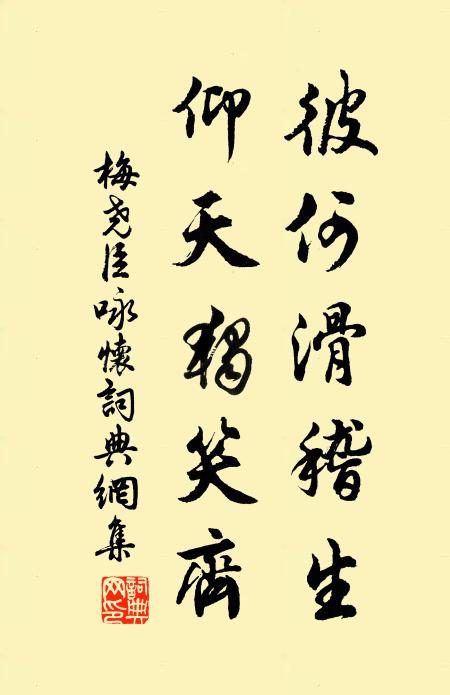 彼何滑稽生
仰天獨笑齊
梅堯臣咏懷詞典網集
詞典網印